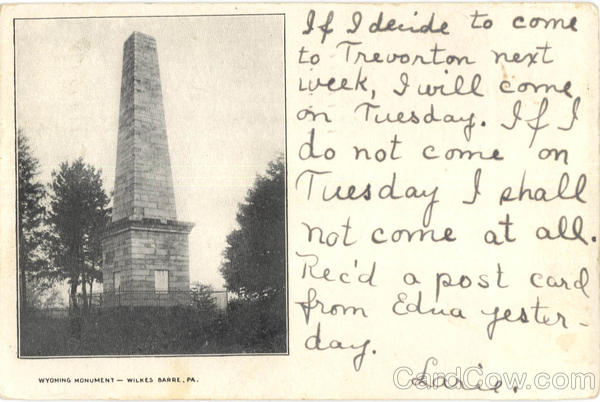 If I decide to come
to Trevorton next
week, I will come
on Tuesday. If I
do not come on
Tuesday I shall
not come at all.
Rec'd a post card
from Edna yester-
day.
WYOMING MONUMENT — WILKES BARRE, PA.
CardCow.com